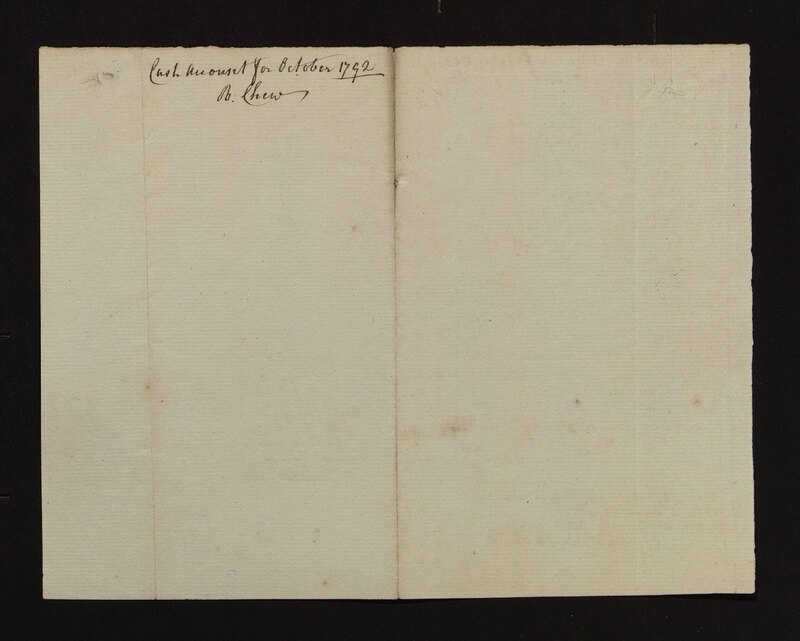 Cash Account for October 1792
B. Chew